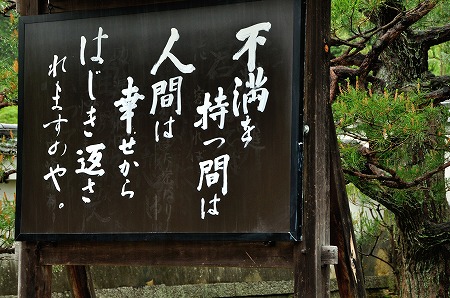 不満を
持つ間は
人間は
幸せから
はじき返さ
れますのや。